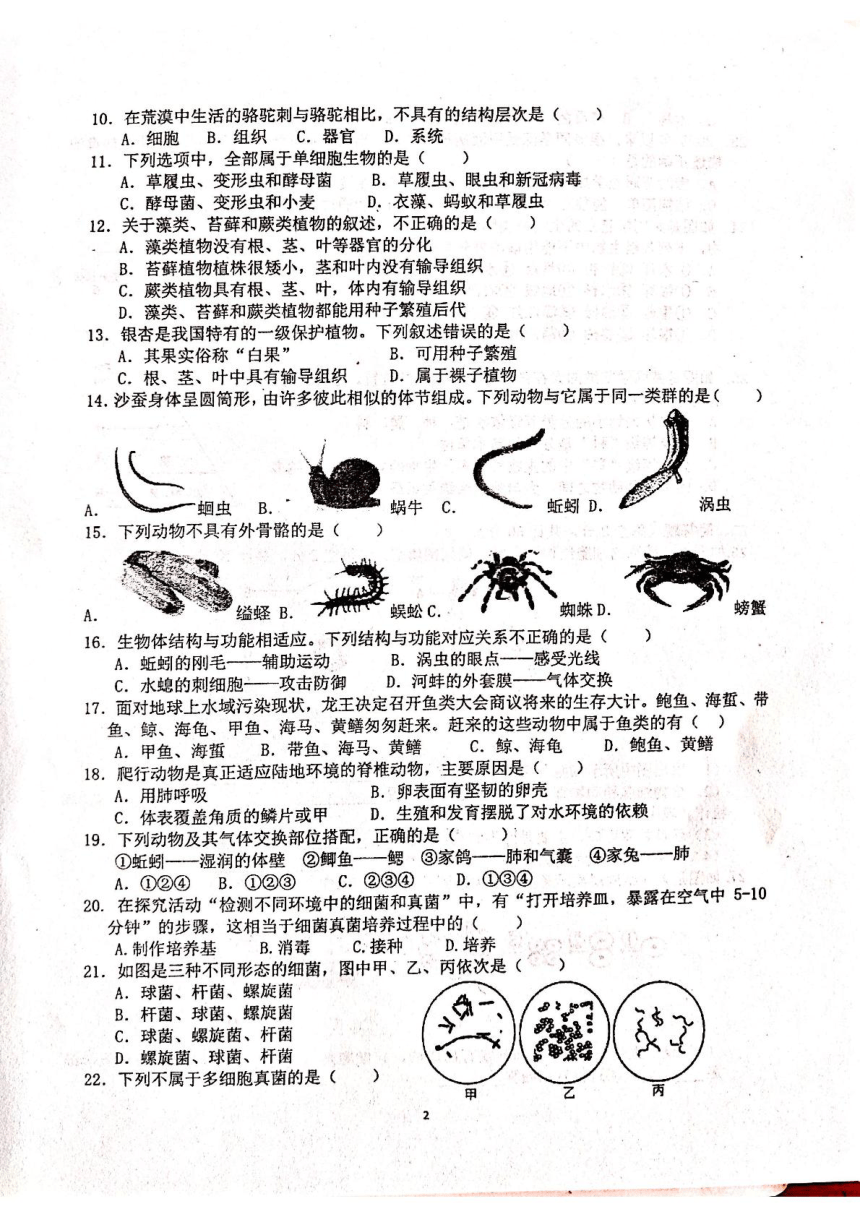 10. 在荒漠中生活的骆驼刺与骆驼相比，不具有的结构层次是（　　）
A. 细胞　B. 组织　C. 器官　D. 系统
11. 下列选项中，全部属于单细胞生物的是（　　）
A. 草履虫、变形虫和酵母菌　B. 草履虫、眼虫和新冠病毒
C. 酵母菌、变形虫和小麦　D. 衣藻、蚂蚁和草履虫
12. 关于藻类、苔藓和蕨类植物的叙述，不正确的是（　　）
A. 藻类植物没有根、茎、叶等器官的分化
B. 苔藓植物植株很矮小，茎和叶内没有输导组织
C. 蕨类植物具有根、茎、叶，体内有输导组织
D. 藻类、苔藓和蕨类植物都能用种子繁殖后代
13. 银杏是我国特有的一级保护植物。下列叙述错误的是（　　）
A. 其果实俗称“白果”　B. 可用种子繁殖
C. 根、茎、叶中具有输导组织　D. 属于裸子植物
14. 沙蚕身体呈圆筒形，由许多彼此相似的体节组成。下列动物与它属于同一类群的是（　　）
A. 蛔虫　B. 蜗牛　C. 蚯蚓　D. 涡虫
15. 下列动物不具有外骨骼的是（　　）
A. 缢蛏　B. 蜈蚣　C. 蜘蛛　D. 螃蟹
16. 生物体结构与功能相适应。下列结构与功能对应关系不正确的是（　　）
A. 蚯蚓的刚毛——辅助运动　B. 涡虫的眼点——感受光线
C. 水螅的刺细胞——攻击防御　D. 河蚌的外套膜——气体交换
17. 面对地球上水域污染现状，龙王决定召开鱼类大会商议将来的生存大计。鲍鱼、海蜇、带
鱼、鲸、海龟、甲鱼、海马、黄鳝匆匆赶来。赶来的这些动物中属于鱼类的有（　）
A. 甲鱼、海蜇　B. 带鱼、海马、黄鳝　C. 鲸、海龟　D. 鲍鱼、黄鳝
18. 爬行动物是真正适应陆地环境的脊椎动物，主要原因是（　　）
A. 用肺呼吸　B. 卵表面有坚韧的卵壳
C. 体表覆盖角质的鳞片或甲　D. 生殖和发育摆脱了对水环境的依赖
19. 下列动物及其气体交换部位搭配，正确的是（　　）
①蚯蚓——湿润的体壁　②鲫鱼——鳃　③家鸽——肺和气囊　④家兔——肺
A. ①②④　B. ①②③　C. ②③④　D. ①③④
20. 在探究活动“检测不同环境中的细菌和真菌”中，有“打开培养皿，暴露在空气中 5-10
分钟”的步骤，这相当于细菌真菌培养过程中的（　　）
A. 制作培养基　B. 消毒　C. 接种　D. 培养
21. 如图是三种不同形态的细菌，图中甲、乙、丙依次是（　　）
A. 球菌、杆菌、螺旋菌
B. 杆菌、球菌、螺旋菌
C. 球菌、螺旋菌、杆菌
D. 螺旋菌、球菌、杆菌
甲　乙　丙
22. 下列不属于多细胞真菌的是（　　）
2